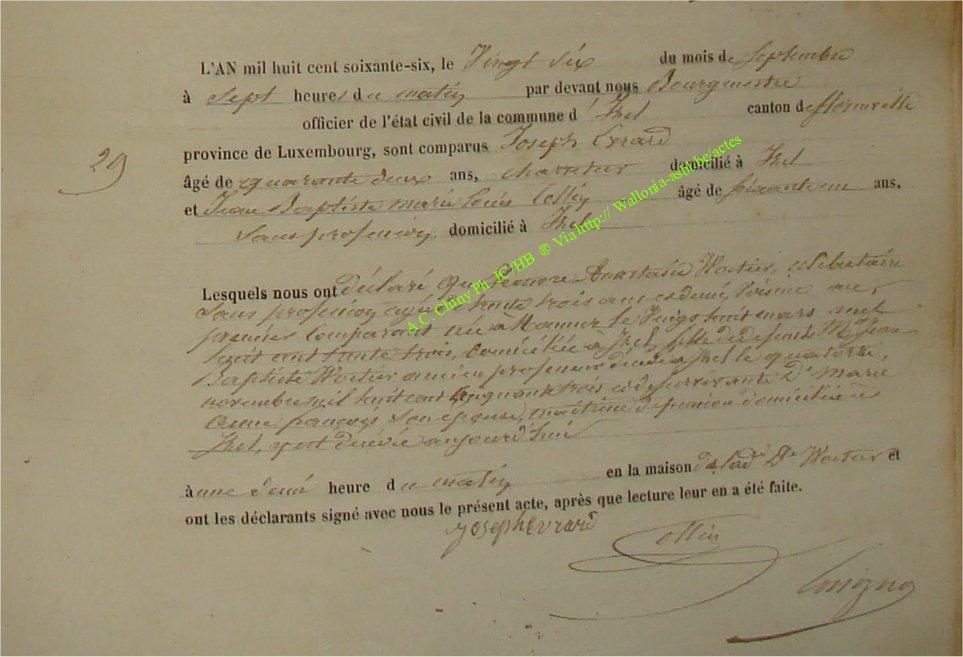 L'AN mil huit cent soixante-six, le Vingt six du mois de septembre
à sept heures du matin par devant nous Bourgmestre
officier de l'état civil de la commune d' Izel canton de florenville
29
province de Luxembourg, sont comparus Joseph Evrard
âgé de quarante deux ans, charretier domicilié à Izel
et Jean Baptiste marie louis Collin âgé de soixante un ans,
Sans profession domicilié à Izel
A.C. Chiny Ph. JC HB ® Via http:// Wallonia-asbl.be/actes
Lesquels nous ont déclaré que Anastasie Wortier, célibataire
Sans profession agée trente trois ans et demi, Voisine au
premier Comparant née à le Vingt huit mars mil
huit cent trente trois, domiciliée à Izel, fille de defunt Mr Jean
Baptiste Wortier ancien professeur décédé à Izel le quatorze
novembre mil huit cent cinquante trois et de survivante De Marie
françois son épouse, maîtresse de pension domiciliée à
Izel, est décédée aujourd'hui
à une demi heure du matin en la maison de la De Wortier et
ont les déclarants signé avec nous le présent acte, après que lecture leur en a été faite.
Joseph Evrard
Collin